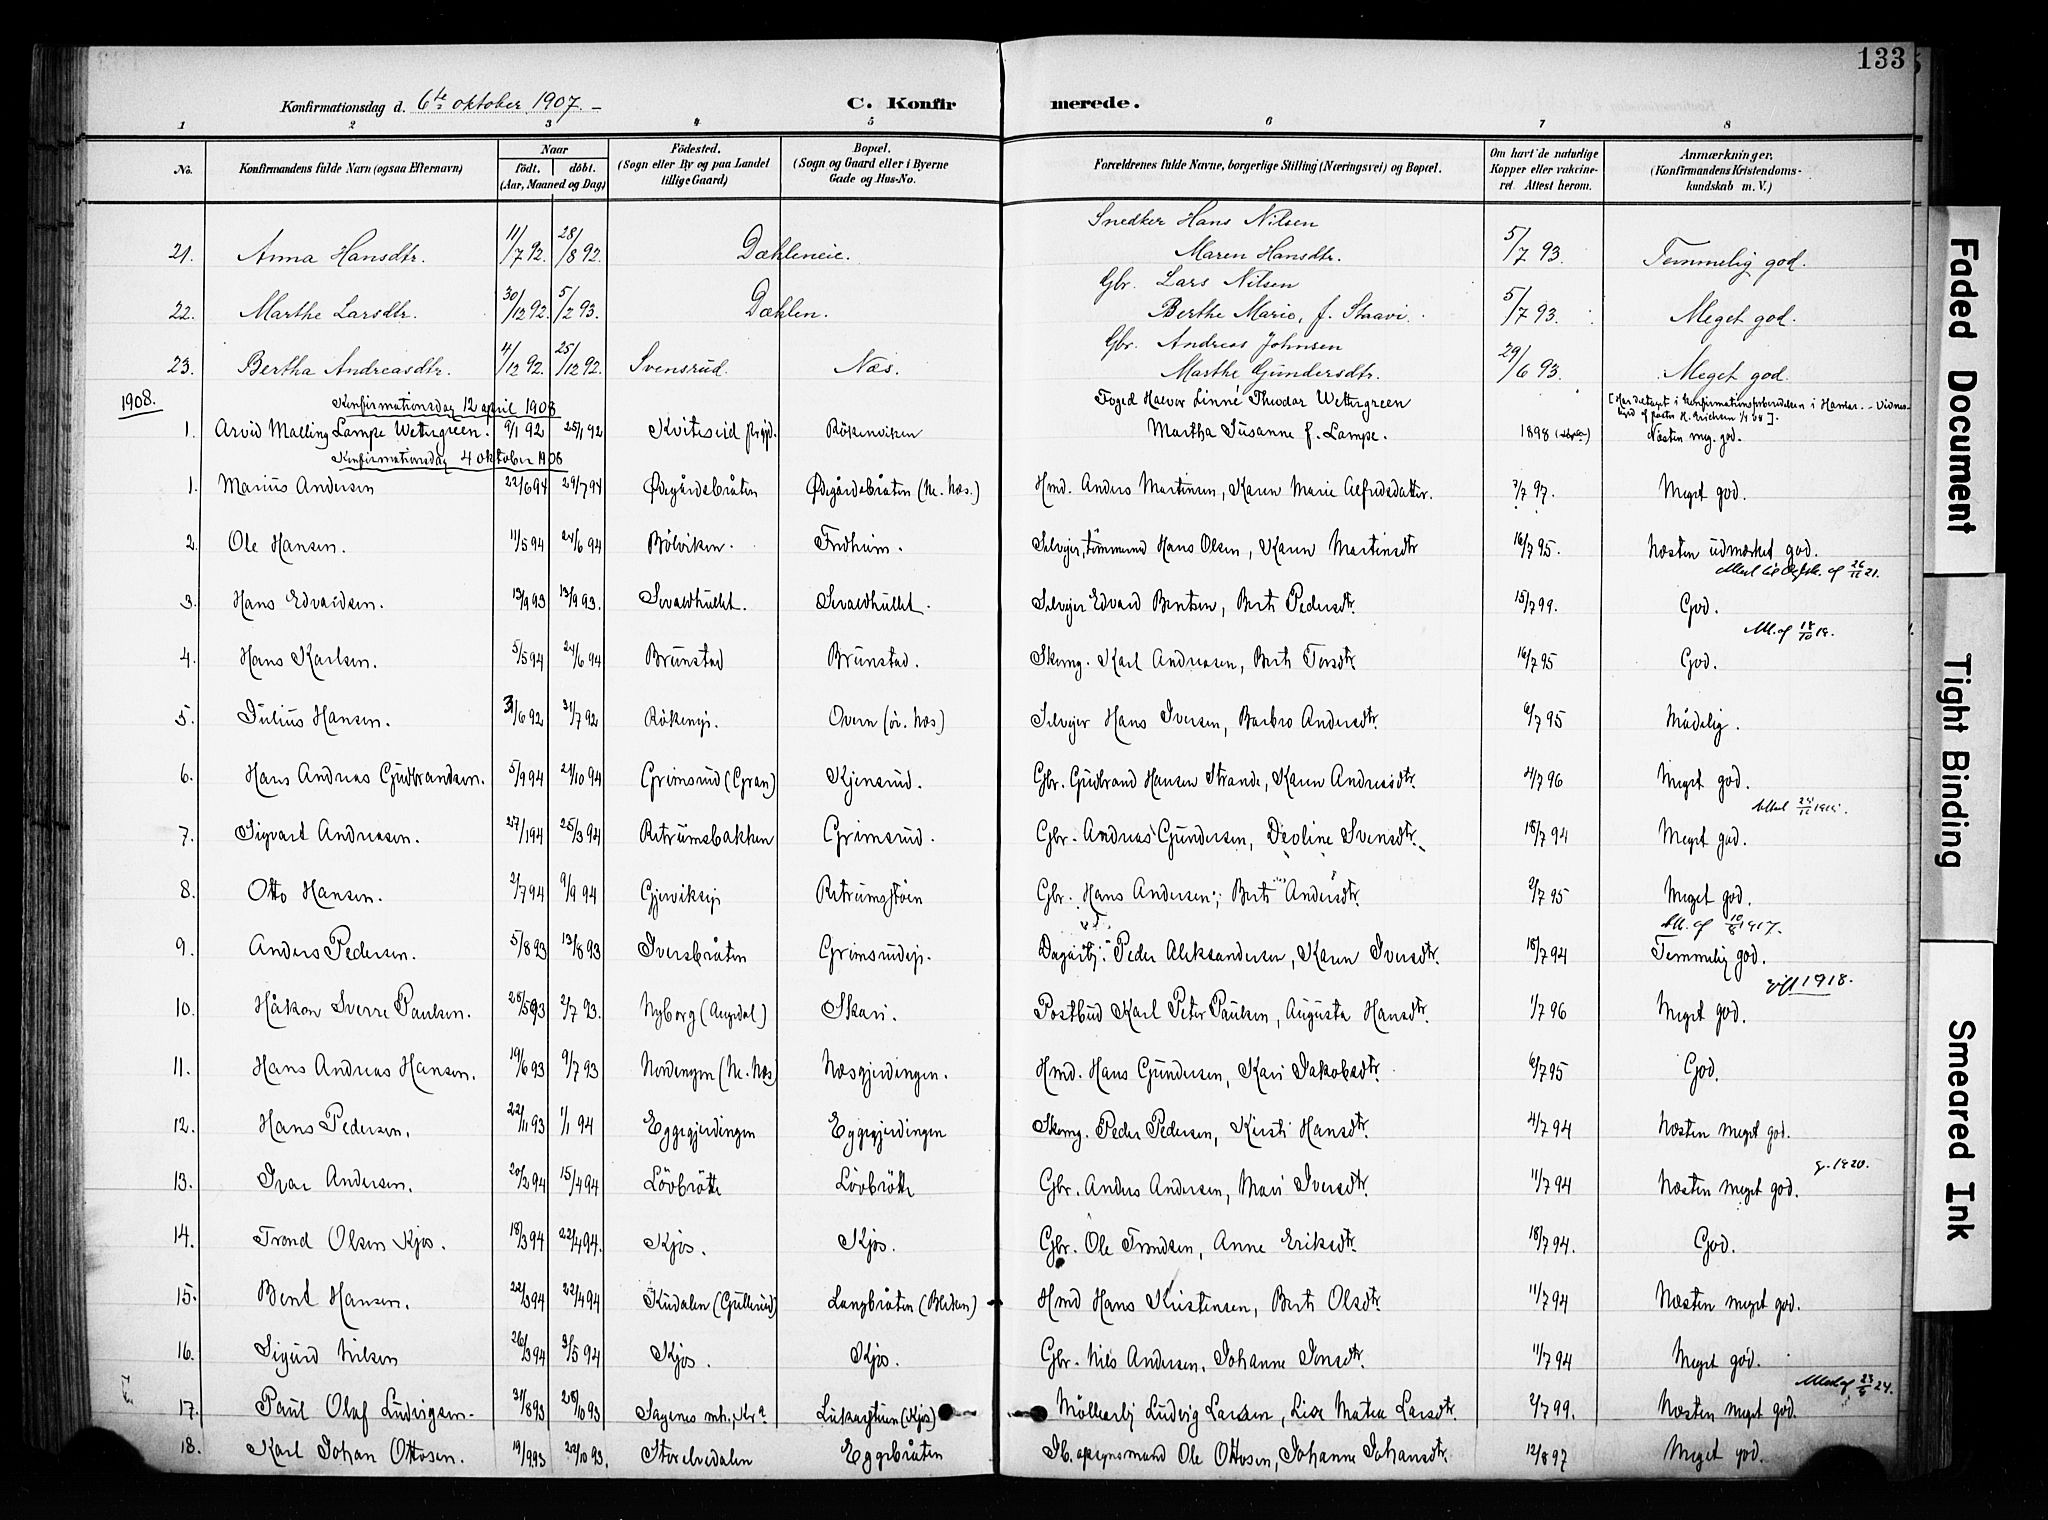 133
Konfirmationsdag d. 6te oktober 1907. —
C. Konfirmerede.
1 2 3 4 5 6 7 8
No. Konfirmandens fulde Navn (ogsaa Efternavn) Naar født. døbt. (Aar, Maaned og Dag) Fødested. (Sogn eller By og paa Landet tillige Gaard) Bopæl. (Sogn og Gaard eller i Byerne Gade og Hus-No. Forældrenes fulde Navne, borgerlige Stilling (Næringsvei) og Bopæl. Om havt de naturlige Kopper eller vakcineret. Attest herom. Anmærkninger. (Konfirmandens Kristendomskundskab m. V.)
21. Anna Hansdtr. 11/7 92. 28/8 92. Dæhleneie. Snedker Hans Nilsen Maren Hansdtr. 5/7 93. Temmelig god.
22. Marthe Larsdtr. 30/12 92. 5/2 93. Dæhlen. Gbr. Lars Nilsen Berthe Marie, f. Staavi. 5/7 93. Meget god.
23. Bertha Andreasdtr. 4/12 92. 25/12 92. Svensrud. Næs. Gbr. Andreas Johnsen Marthe Gundersdtr. 29/6 93. Meget god.
1908. Konfirmationsdag 12 april 1908
1. Arvid Malling Lampe Wettergreen. 9/1 92 25/1 92 Kviteseid prgjd. Rökenviken Foged Halvor Linné Theodor Wettergreen Martha Susanne f. Lampe. 1898 [Har deltaget i Konfirmationsforberedelsen i Hamar. - Vidnesbyrd af pastor H. Erichsen 1/4 08]. Næsten meg. god.
Konfirmationsdag 4 oktober 1908
1. Marius Andersen 22/6 94 29/7 94 Ødegårdsbråten Ødegårdsbråten (N. Næs.) Hmd. Anders Martinsen, Karen Marie Alfredsdatter. 7/7 97. Meget god.
2. Ole Hansen. 11/5 94 24/6 94 Bölviken. Fredheim. Selvejer, tömmermd Hans Olsen, Karen Martinsdtr 16/7 95. Næsten udmærket god.
3. Hans Edvardsen. 13/9 93 17/9 93. Sevaldhullet. Sevaldhullet. Selvejer Edvard Bentsen, Berte Pedersdtr. 15/7 99. God. Attest til Ægtsk. af 26/11 21.
4. Hans Karlsen. 5/5 94 24/6 94 Brunstad Brunstad. Skomg. Karl Andreasen, Berte Torsdtr. 16/7 95 God. Att. af 18/10 18.
5. Julius Hansen. 3/6 92 31/7 92 Rökenej. Overn (öv. Næs) Selvejer Hans Iversen, Barbro Andersdtr. 6/7 95 Mådelig.
6. Hans Andreas Gudbrandsen. 5/9 94 21/10 94 Grimsrud (Gran) Kjensrud. Gbr. Gudbrand Hansen Strande, Karen Andreasdtr. 4/7 96 Meget god.
7. Sigvart Andreasen. 27/1 94 25/3 94 Retrumsbakken Grimsrud. Gbr. Andreas Gundersen, Deoline Svensdtr. 18/7 94 Meget god.
8. Otto Hansen. 2/7 94 9/9 94 Gjerviksej Retrumstöen Gbr. Hans Andersen, Berte Andersdtr. 2/7 95 Meget god.
9. Anders Pedersen. 5/8 93 13/8 93 Iversbråten Grimsrudej. Dagarbj. Peder Aleksandersen, Karen Iversdtr. 18/7 94 Temmelig god. Att. af 10/8 1917.
10. Håkon Sverre Paulsen. 28/5 93 2/7 93. Nyborg (Augedal) Skari. Postbud Karl Peter Paulsen, Augusta Hansdtr. 1/7 96 Meget god. gift 1918.
11. Hans Andreas Hansen. 19/6 93 9/7 93 Nordengen (N. Næs) Næsgjerdingen. Hmd. Hans Gundersen, Kari Jakobsdtr. 6/7 95 God.
12. Hans Pedersen. 22/11 93 1/1 94 Eggegjerdingen Eggegjerdingen Skomg. Peder Pedersen, Kirsti Hansdtr. 4/7 94 Næsten meget god.
13. Ivar Andersen. 20/2 94 15/4 94 Lövbråtte Lövbråtte Gbr. Anders Andersen, Mari Iversdtr. 11/7 94 Næsten meget god. g. 1920.
14. Trond Olsen Kjos. 18/3 94 22/4 94. Kjos. Kjos. Gbr. Ole Trondsen, Anne Eriksdtr. 18/7 94. God.
15. Bent Hansen. 22/3 94 22/4 94 Kudalen (Gullerud) Langbråten (Bleken) Hmd Hans Kristensen, Berte Olsdtr. 11/7 94 Næsten meget god.
16. Sigurd Nilsen 26/3 94 3/5 94 Kjos. Kjos. Gbr. Nils Andersen, Johanne Jonsdtr. 11/7 94 Meget god.
17. Paul Olaf Ludvigsen. 31/8 93 28/10 93 Sagenes mh., Kra. (Kjos) Möllearbj Ludvig Larsen, Lise Matea Larsdtr. 2/7 99. Næsten meget god. Attest af 23/5 24.
18. Karl Johan Ottosen. 19/9 93 22/10 93. Storelvedalen Eggebråten Jb. opsynsmand Ole Ottosen, Johanne Johansdtr. 12/8 97 Meget god.
Faded Document
Tight Binding
Smeared Ink